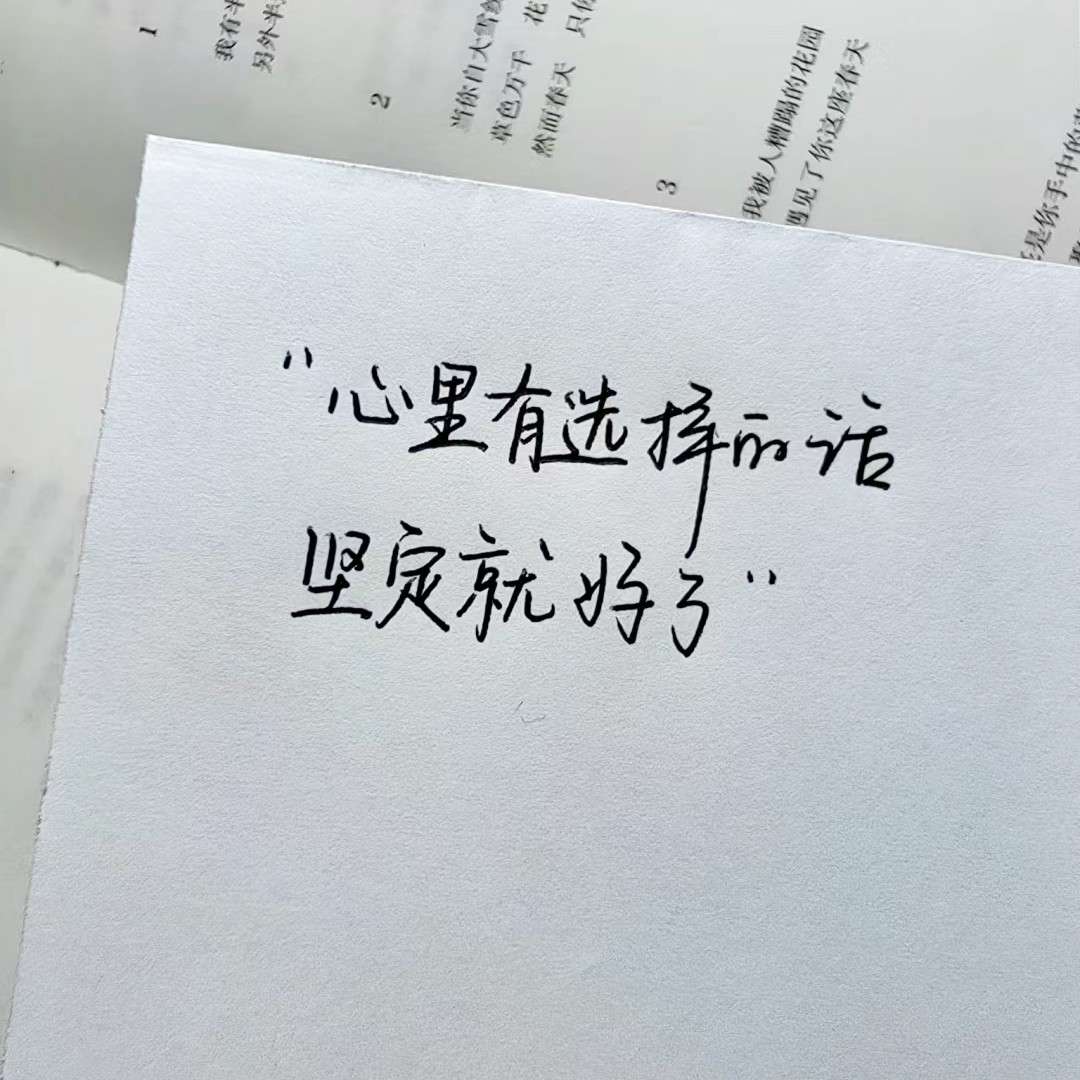 1
我看
另外半
2
当你自大雪
草色万千 花
然而春天 只
3
我被人糟蹋的花园
遇见了你这座春天
是你手中的
“心里有选择的话
坚定就好了”